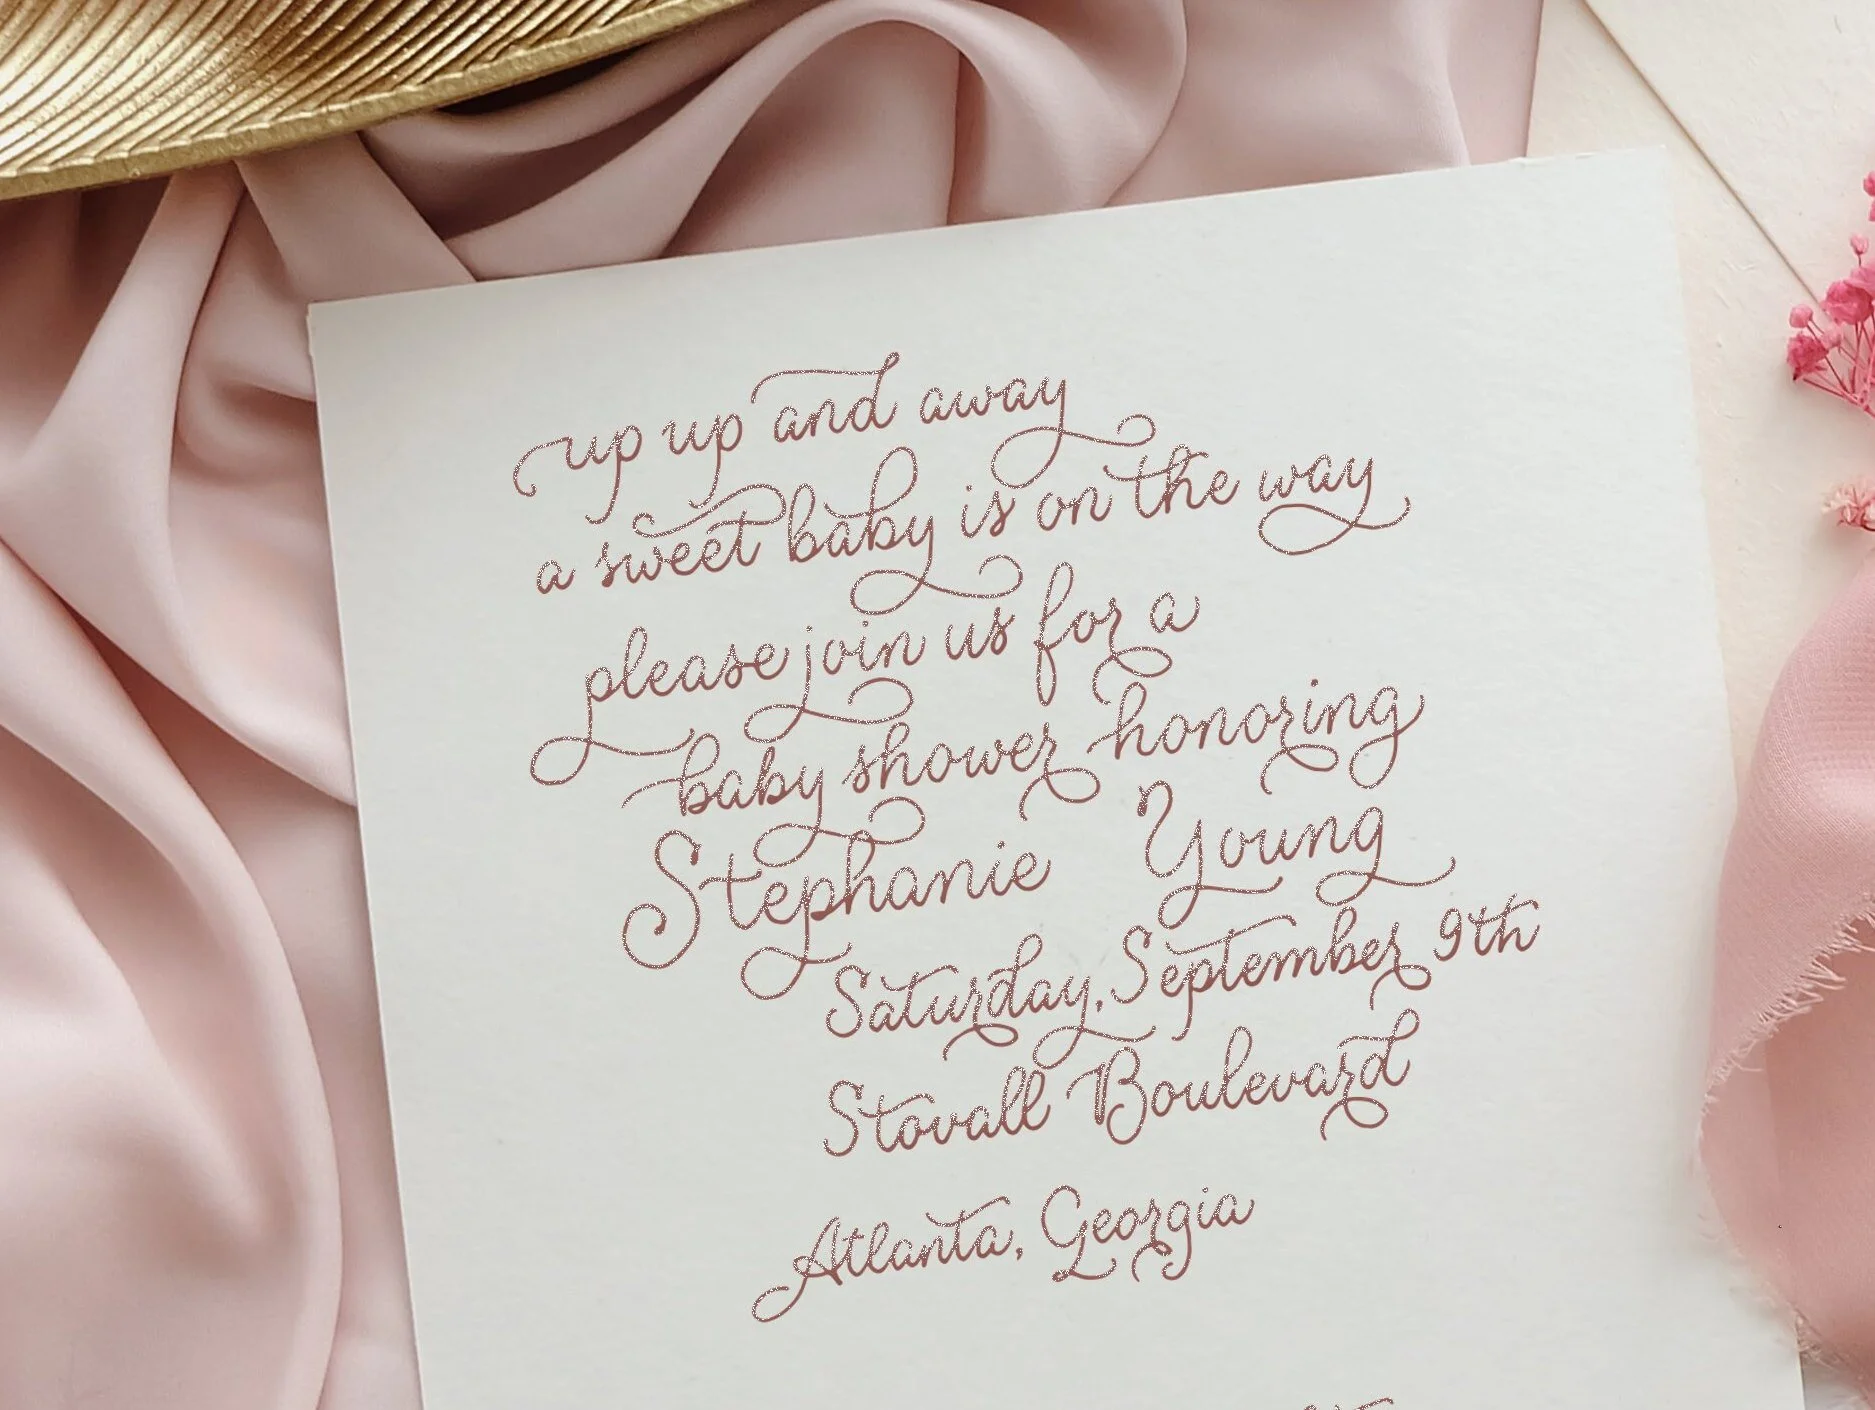 up up and away
a sweet baby is on the way
please join us for a
baby shower honoring
Stephanie Young
Saturday, September 9th
Stovall Boulevard
Atlanta, Georgia